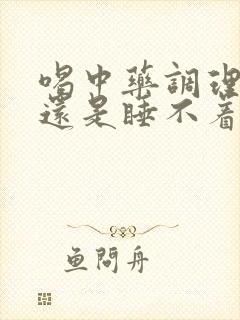 喝中藥調理
還是睡不着
鱼問舟